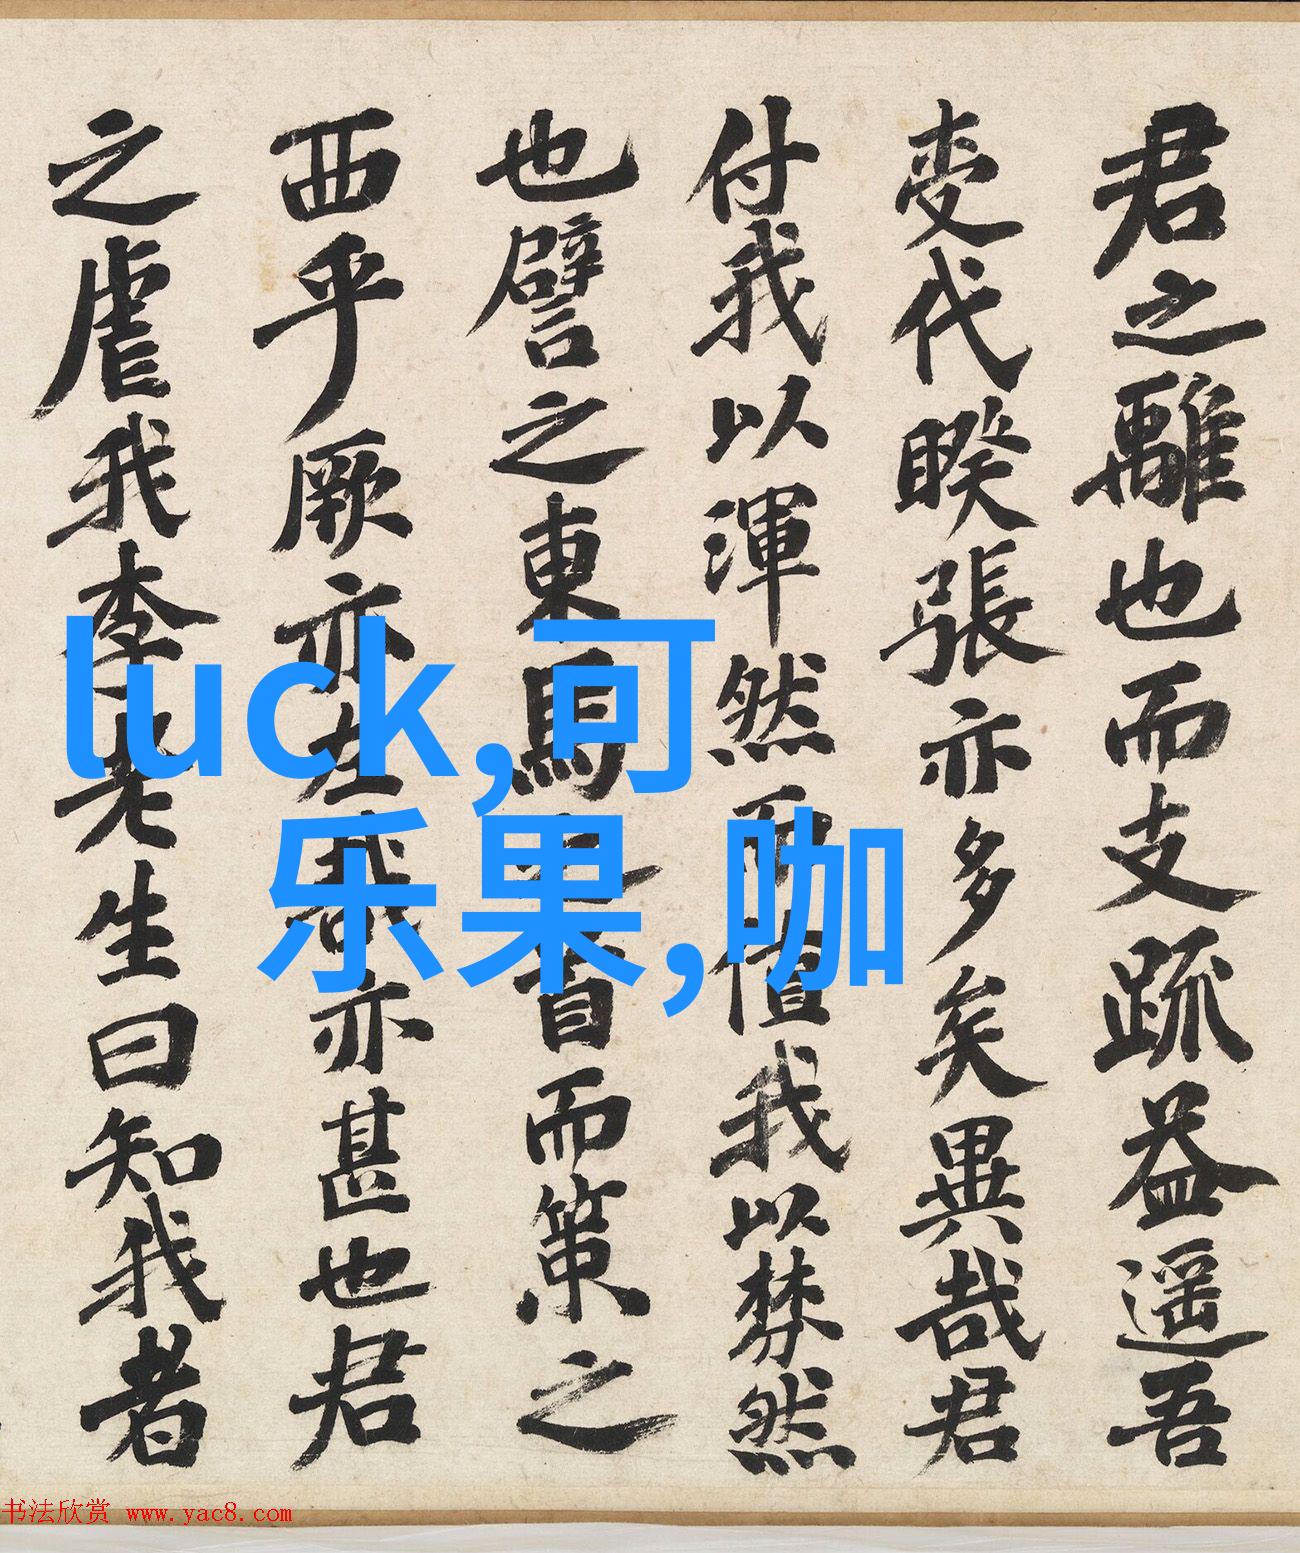 君之離也而支疏益遥吾
变代睽張亦多矣異哉君
付我以渾然而值我以棼然
也譬之東馬之首而策之
西乎厥亦左哉亦甚也君
之虐我李老生曰知我者
luck,可
乐果,咖
书法欣赏 www.yac8.com